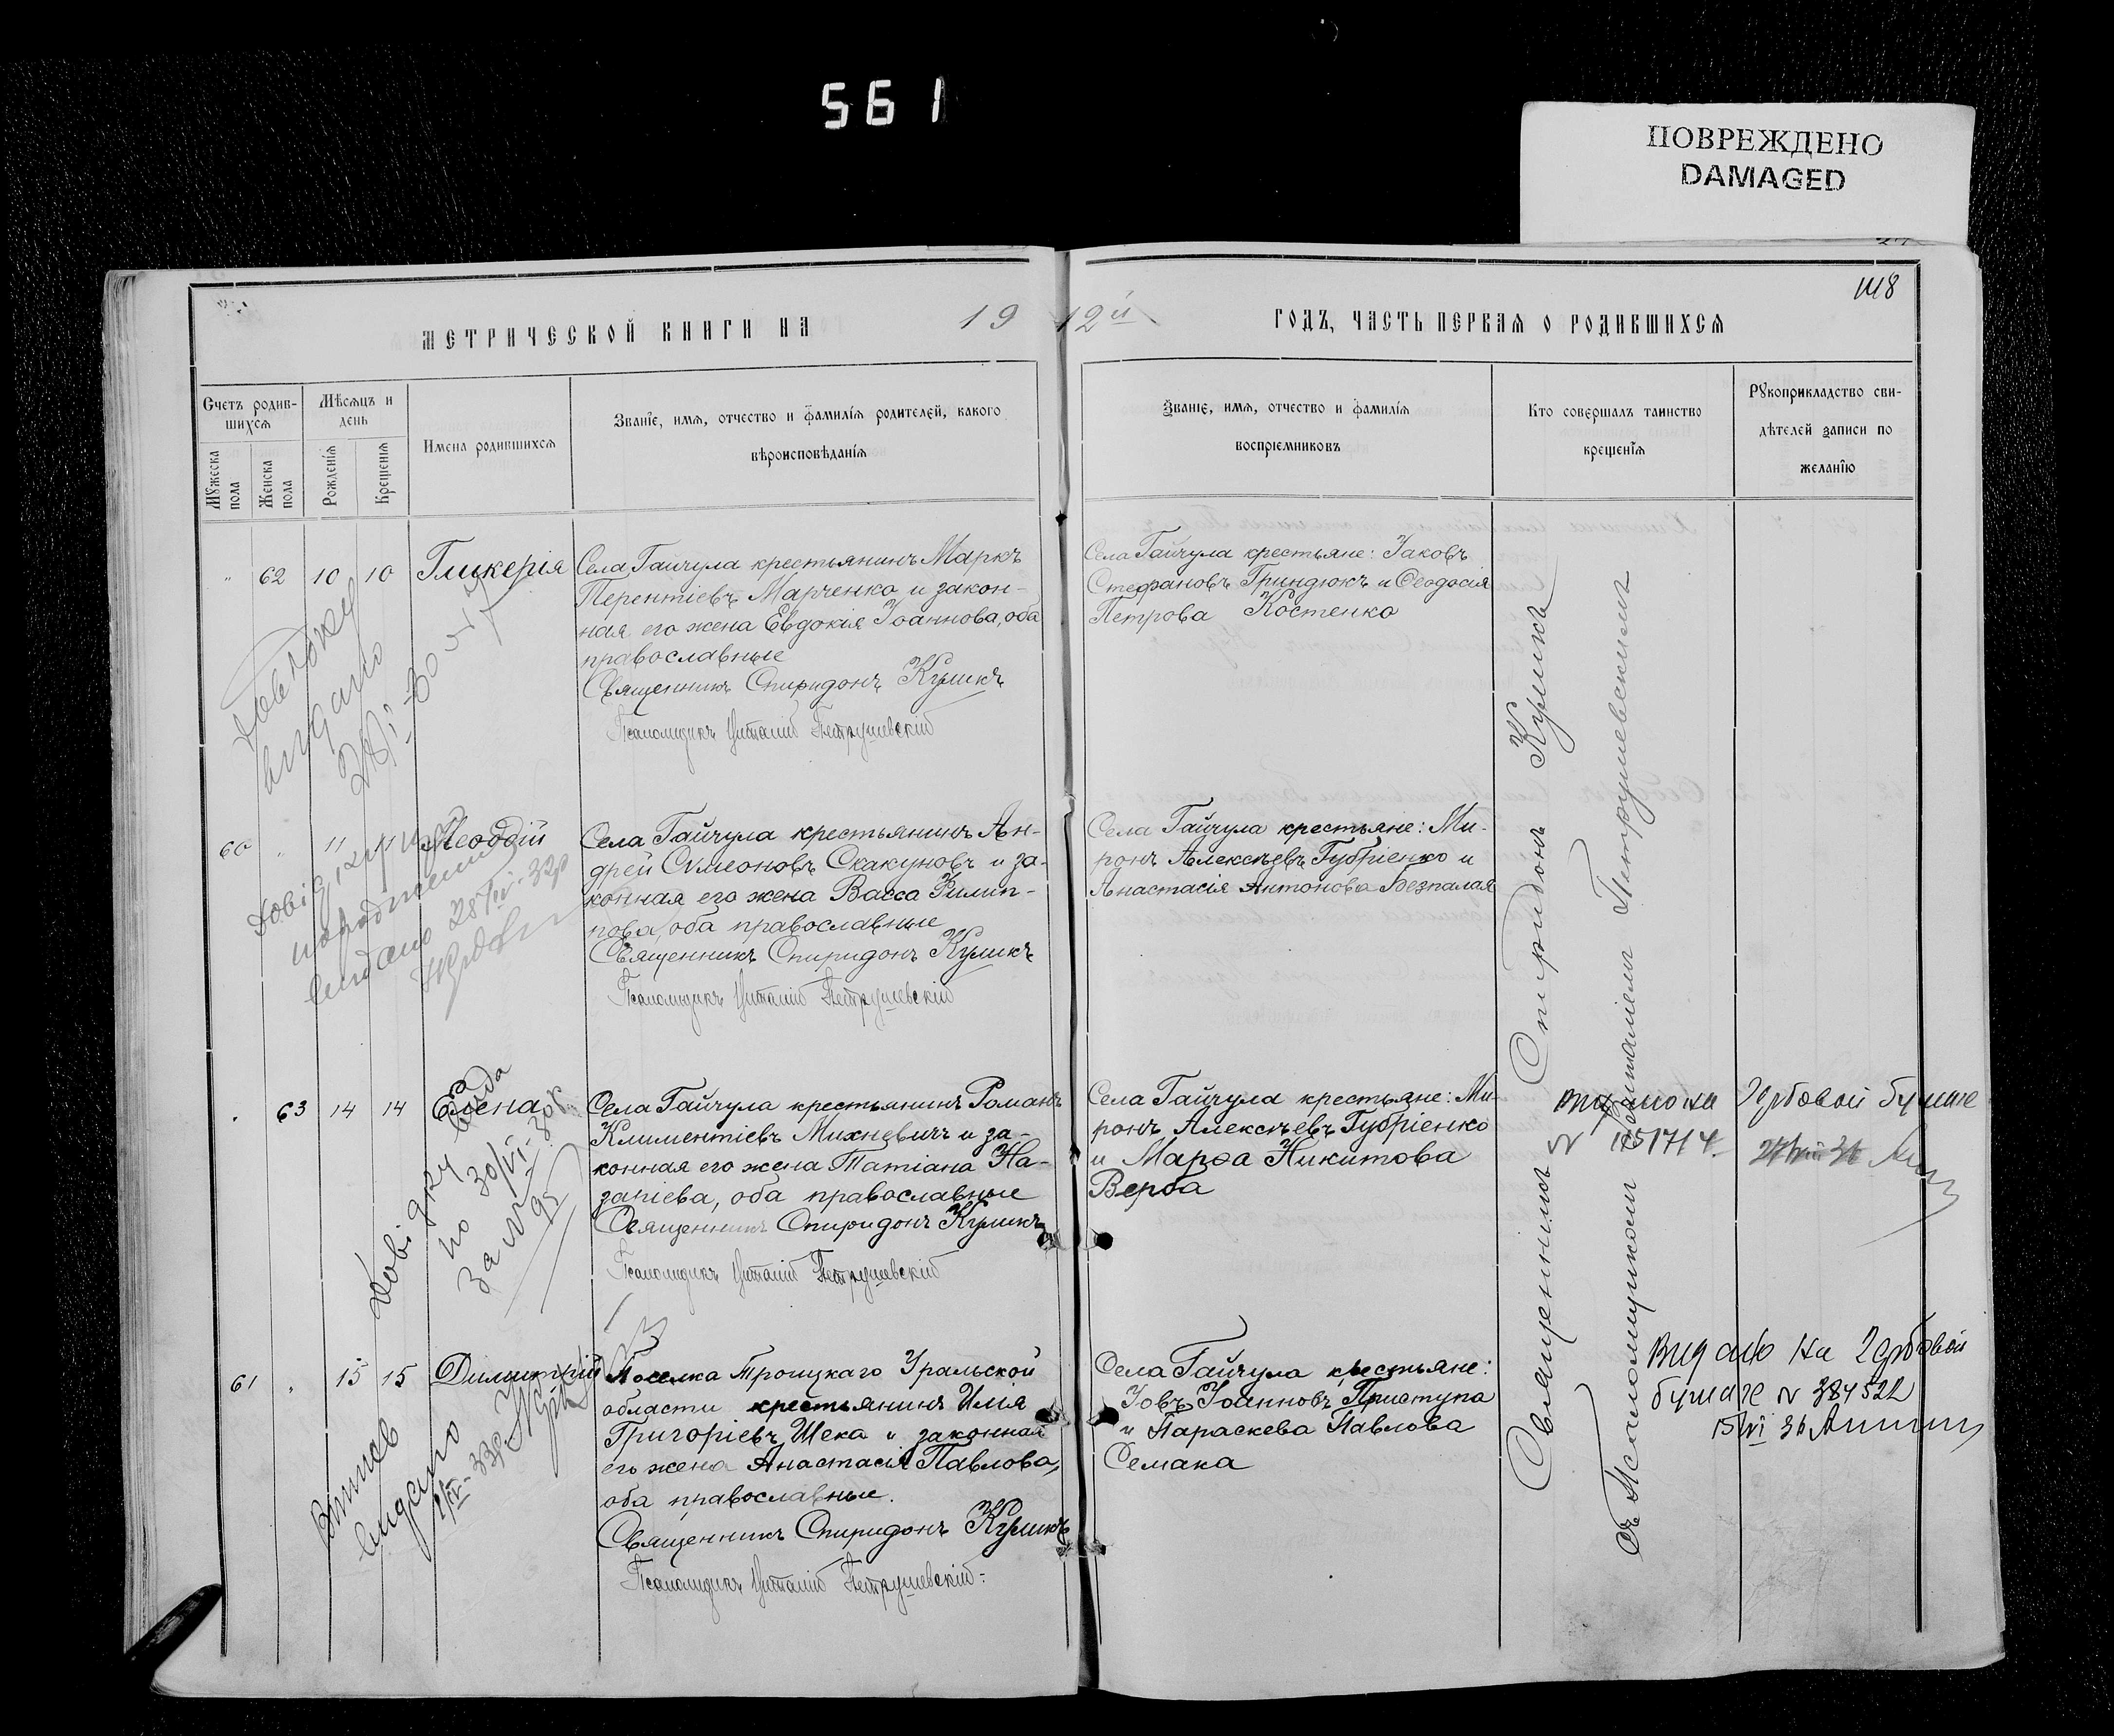 561
ПОВРЕЖДЕНО
DAMAGED
1118
МЕТРИЧЕСКОЙ КНИГИ НА 1912й ГОДЪ, ЧАСТЬ ПЕРВАЯ О РОДИВШИХСЯ
Счетъ родив-
шихся
Мужеска пола
Женска пола
Мѣсяцъ и
день
Рожденія
Крещенія
Имена родившихся
Званіе, имя, отчество и фамилія родителей, какого
вѣроисповѣданія
Званіе, имя, отчество и фамилія
воспріемниковъ
Кто совершалъ таинство
крещенія
Рукоприкладство сви-
дѣтелей записи по
желанію
" 62 10 10 Гликерія
Села Гайчула крестьянинъ Маркъ
Терентіевъ Марченко и закон-
ная его жена Евдокія Іоаннова, оба
православные
Священникъ Спиридонъ Куликъ
Псаломщикъ Виталій Петрушевскій
Села Гайчула крестьяне: Іаковъ
Стефановъ Гриндюкъ и Ѳеодосія
Петрова Костенко
видано
60 " 11 11
Села Гайчула крестьянинъ Ан-
дрей Симеоновъ Скакуновъ и за-
конная его жена Васса Филип-
пова, оба православные
Священникъ Спиридонъ Куликъ
Псаломщикъ Виталій Петрушевскій
Села Гайчула крестьяне: Ми-
ронъ Алексѣевъ Губріенко и
Анастасія Антонова Безпалая
видано 28/IV-32р
" 63 14 14 Елена
Села Гайчула крестьянинъ Романъ
Климентіевъ Михневичъ и за-
конная его жена Татіана На-
заріева, оба православные
Священникъ Спиридонъ Куликъ
Псаломщикъ Виталій Петрушевскій
Села Гайчула крестьяне: Ми-
ронъ Алексѣевъ Губріенко
и Марѳа Никитова
Верба
Довідку
по 30/VI-30р.
За №
95
видано на Гербовой бумаге
61 " 15 15 Димитрій
Поселка Троицкаго Уральской
области крестьянинъ Илія
Григоріевъ Щека и законная
его жена Анастасія Павлова,
оба православные.
Священникъ Спиридонъ Куликъ
Псаломщикъ Виталій Петрушевскій
Села Гайчула крестьяне:
Іовъ Іоанновъ Приступа
и Параскева Павлова
Семака
видано
Видано на Гербовой
бумаге № 384522
15/VI 36
Священникъ Спиридонъ Куликъ
съ Псаломщикомъ Виталіемъ Петрушевскимъ